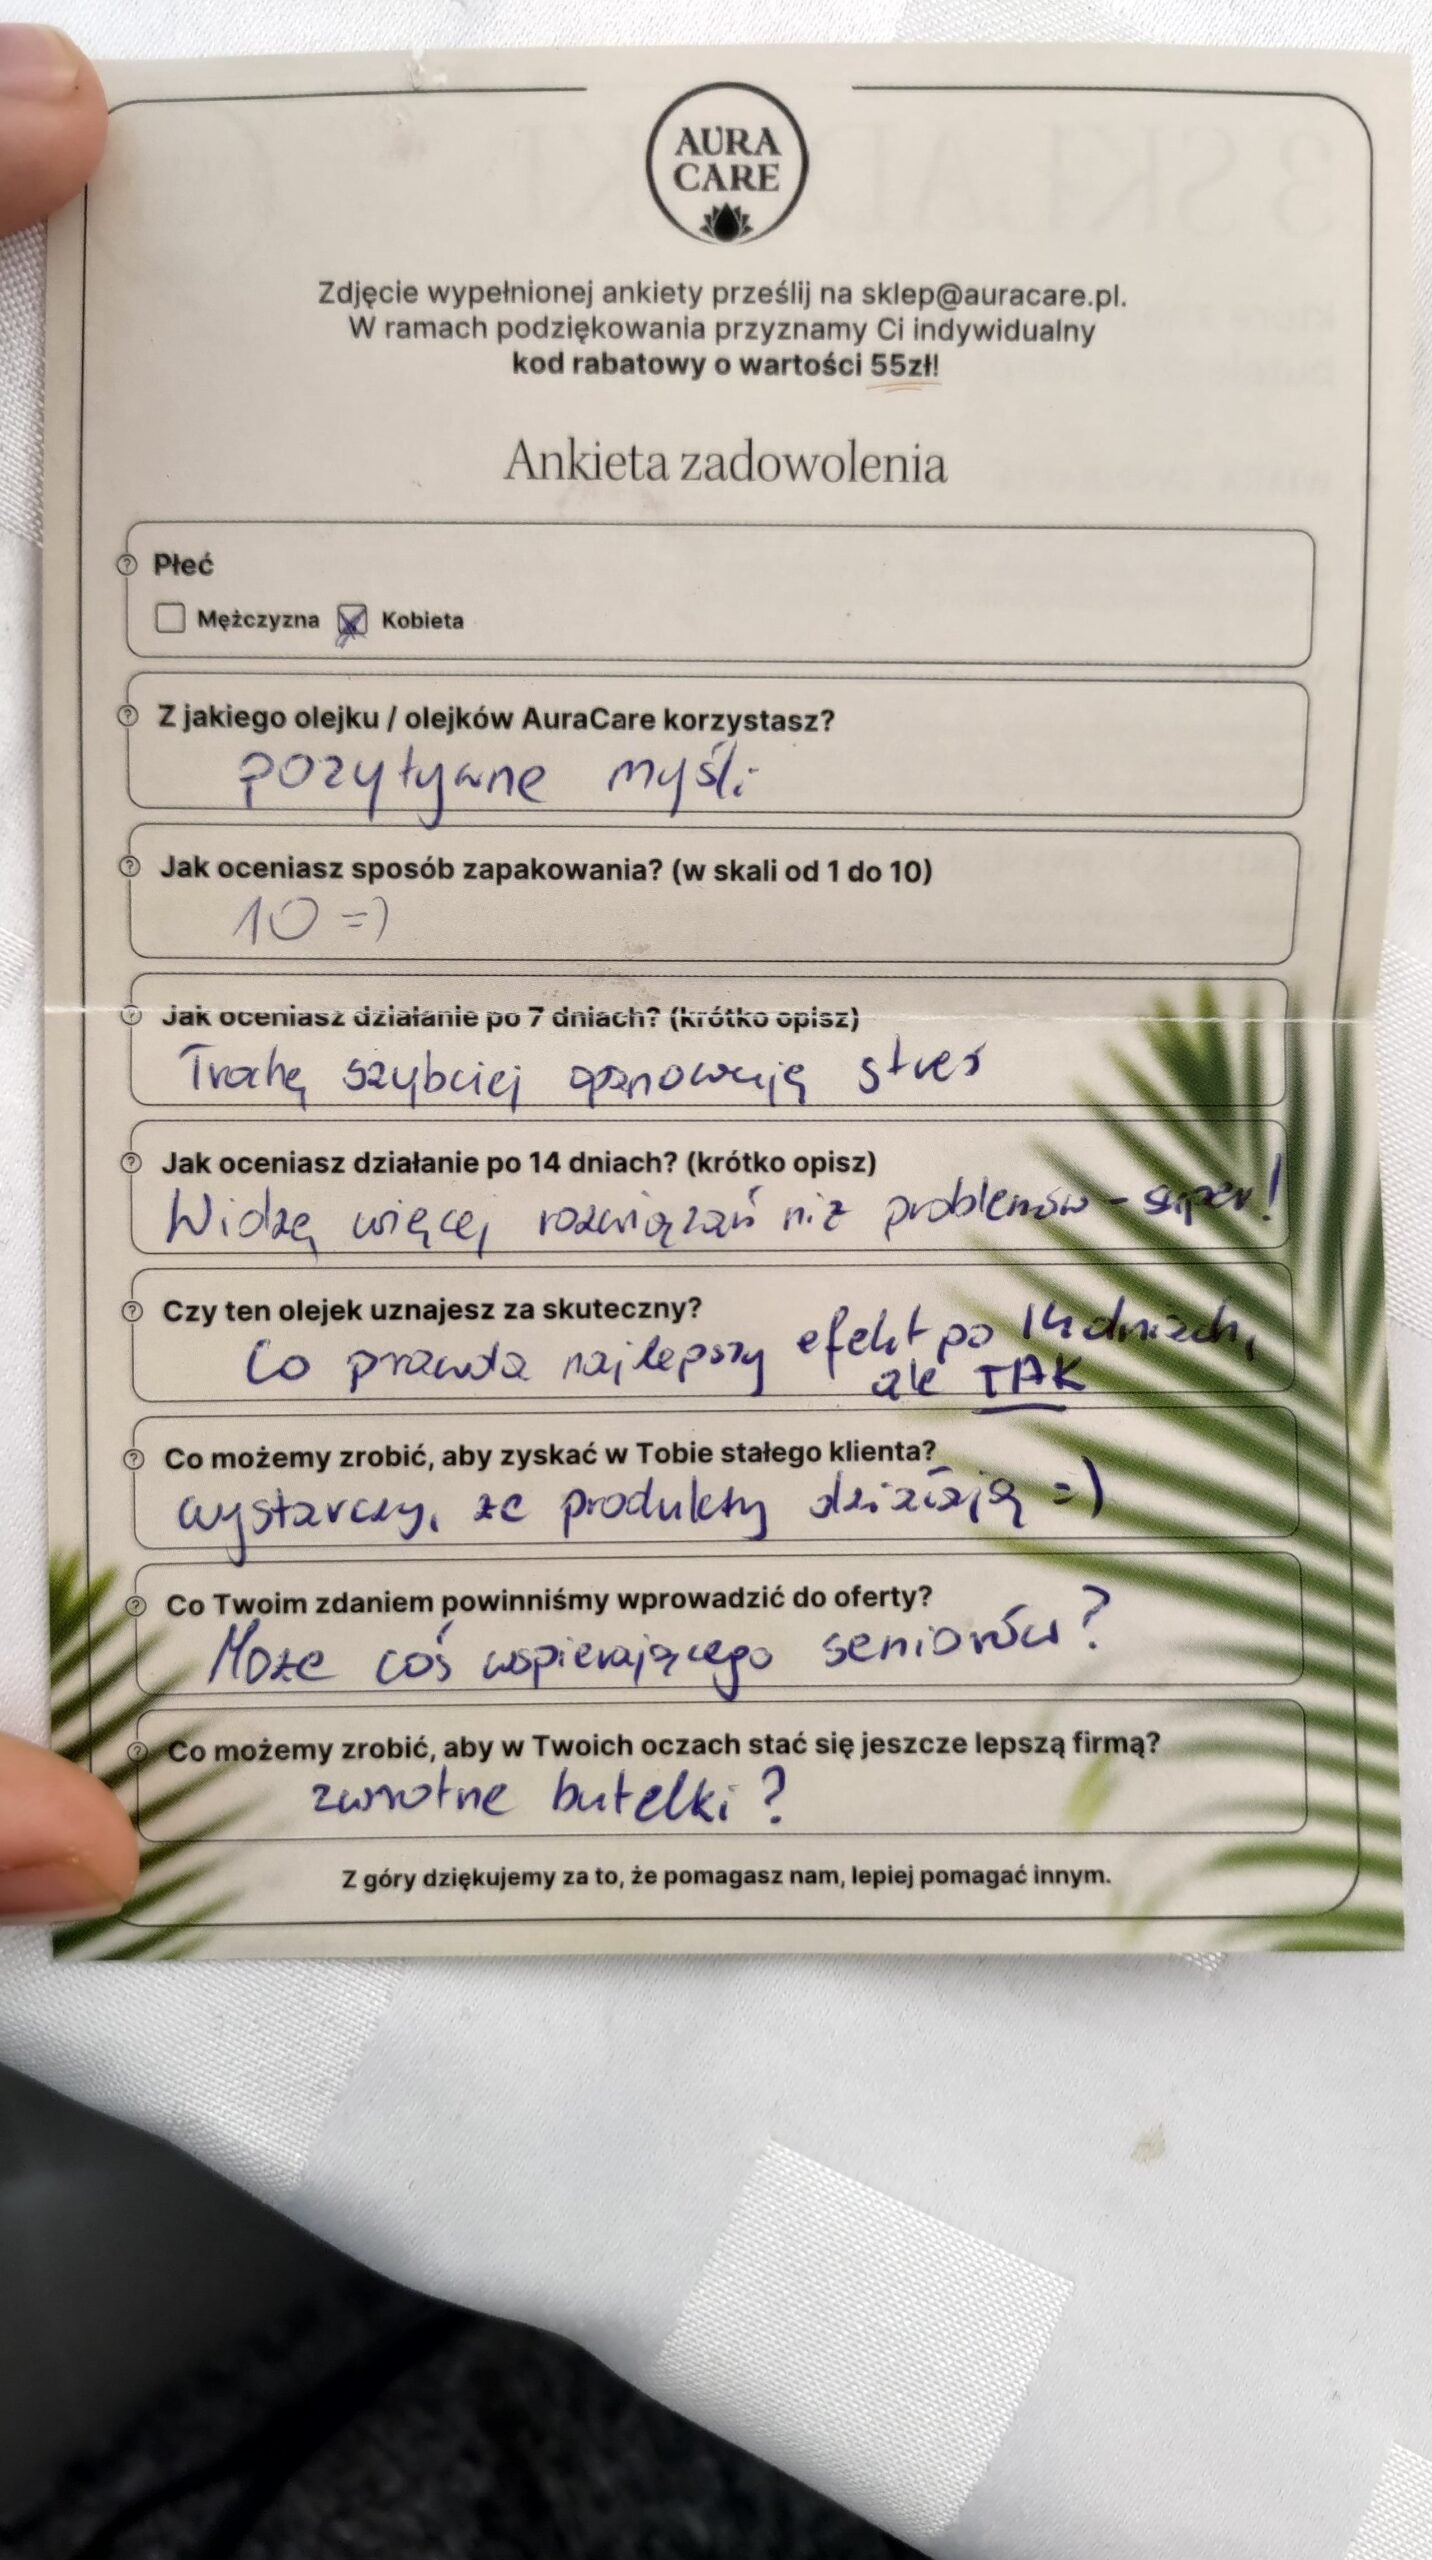 AURA
CARE
Zdjęcie wypełnionej ankiety prześlij na sklep@auracare.pl.
W ramach podziękowania przyznamy Ci indywidualny
kod rabatowy o wartości 55zł!
Ankieta zadowolenia
Płeć
Mężczyzna Kobieta
Z jakiego olejku / olejków AuraCare korzystasz?
pozytywne myśli
Jak oceniasz sposób zapakowania? (w skali od 1 do 10)
10 =)
Jak oceniasz działanie po 7 dniach? (krótko opisz)
Trochę szybciej opanowuję stres
Jak oceniasz działanie po 14 dniach? (krótko opisz)
Widzę więcej rozwiązań niż problemów - super!
Czy ten olejek uznajesz za skuteczny?
Co prawda najlepszy efekt po 14 dniach,
ale TAK
Co możemy zrobić, aby zyskać w Tobie stałego klienta?
wystarczy, że produkty działają =)
Co Twoim zdaniem powinniśmy wprowadzić do oferty?
Może coś wspierającego seniorów?
Co możemy zrobić, aby w Twoich oczach stać się jeszcze lepszą firmą?
zwrotne butelki?
Z góry dziękujemy za to, że pomagasz nam, lepiej pomagać innym.